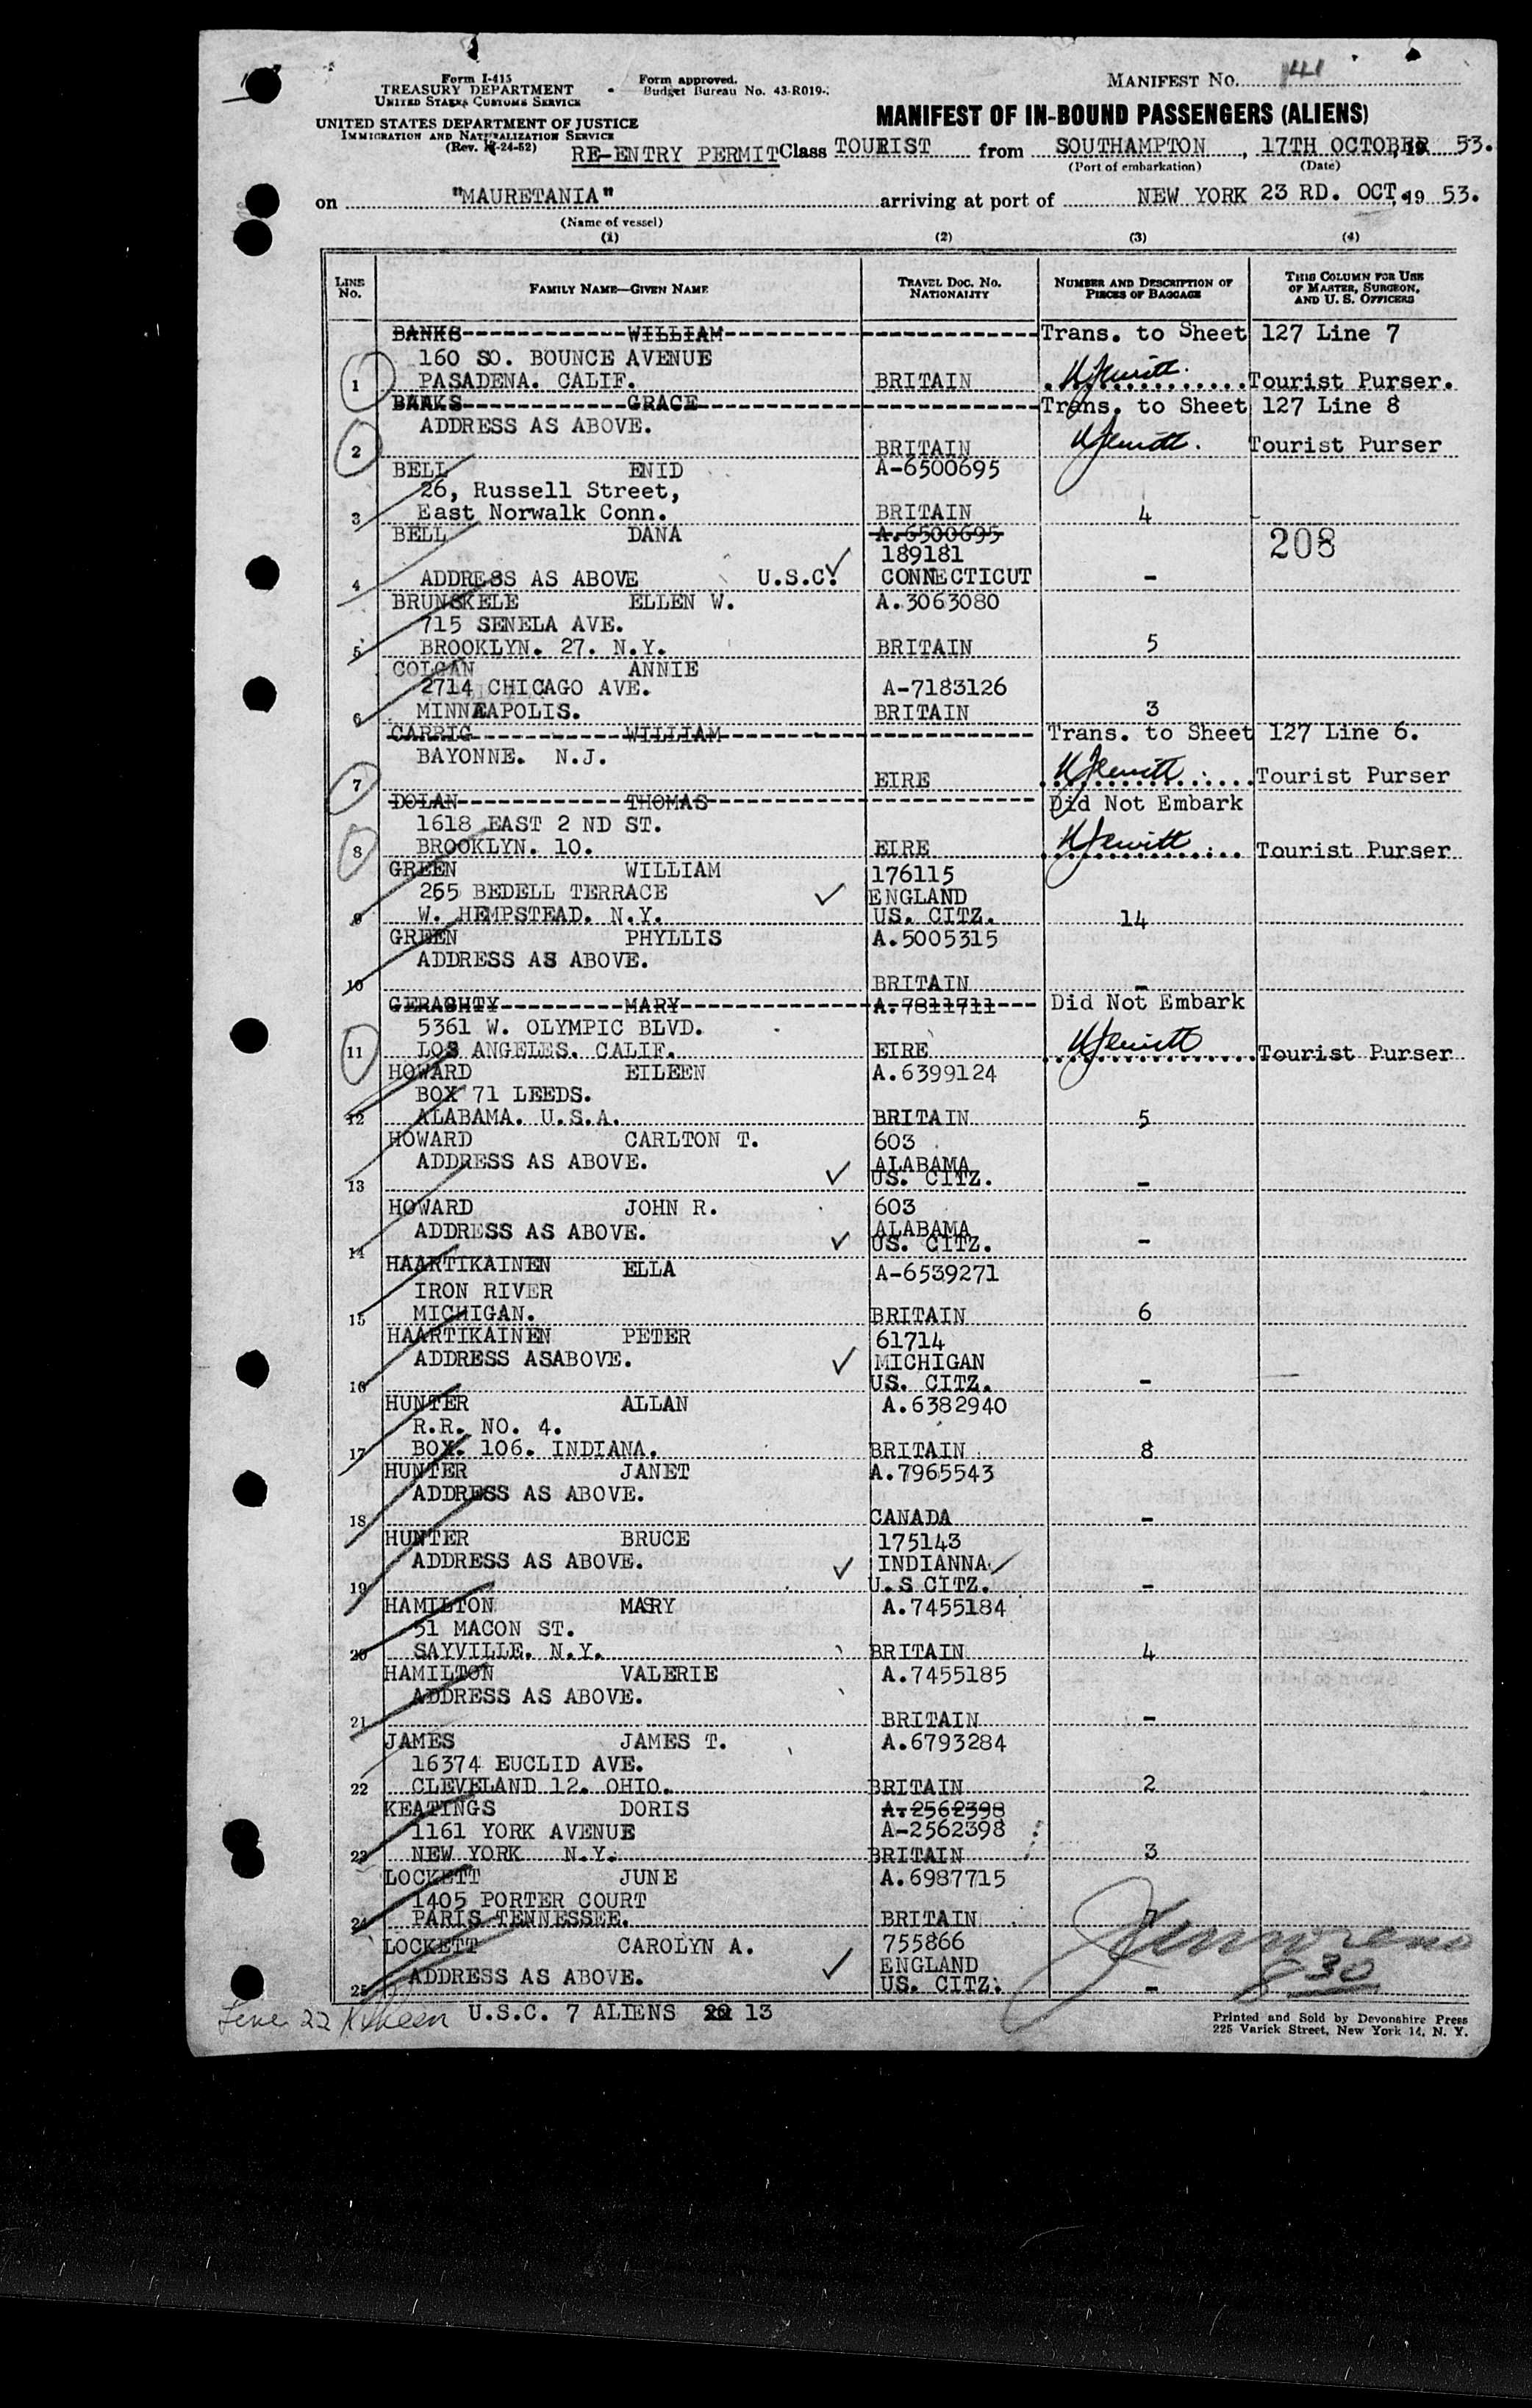 Form I-415
TREASURY DEPARTMENT
UNITED STATES CUSTOMS SERVICE
UNITED STATES DEPARTMENT OF JUSTICE
IMMIGRATION AND NATURALIZATION SERVICE
(Rev. -24-52)
Form approved.
Budget Bureau No. 43-R019-
MANIFEST NO. 141
MANIFEST OF IN-BOUND PASSENGERS (ALIENS)
RE-ENTRY PERMIT Class TOURIST from SOUTHAMPTON, 17TH OCTOBER 19 53.
(Port of embarkation) (Date)
on "MAURETANIA" arriving at port of NEW YORK 23 RD. OCT. 19 53.
(Name of vessel)
(1) (2) (3) (4)
LINE No. FAMILY NAME—GIVEN NAME TRAVEL DOC. NO. NATIONALITY NUMBER AND DESCRIPTION OF PIECES OF BAGGAGE THIS COLUMN FOR USE OF MASTER, SURGEON, AND U. S. OFFICERS
BANKS WILLIAM Trans. to Sheet 127 Line 7
160 SO. BOUNCE AVENUE
1 PASADENA. CALIF. BRITAIN Tourist Purser.
BANKS GRACE Trans. to Sheet 127 Line 8
ADDRESS AS ABOVE.
2 BRITAIN Tourist Purser
BELL ENID A-6500695
26, Russell Street,
3 East Norwalk Conn. BRITAIN 4
BELL DANA A.6500695
189181 208
4 ADDRESS AS ABOVE U.S.C. CONNECTICUT -
BRUNSKELE ELLEN W. A.3063080
715 SENELA AVE.
5 BROOKLYN. 27. N.Y. BRITAIN 5
COLGAN ANNIE
2714 CHICAGO AVE. A-7183126
6 MINNEAPOLIS. BRITAIN 3
CARRIG WILLIAM Trans. to Sheet 127 Line 6.
BAYONNE. N.J.
7 EIRE Tourist Purser
DOLAN THOMAS Did Not Embark
1618 EAST 2 ND ST.
8 BROOKLYN. 10. EIRE Tourist Purser
GREEN WILLIAM 176115
265 BEDELL TERRACE ENGLAND
9 W. HEMPSTEAD. N.Y. US. CITZ. 14
GREEN PHYLLIS A.5005315
ADDRESS AS ABOVE.
10 BRITAIN -
GERAGHTY MARY A.7811711 Did Not Embark
5361 W. OLYMPIC BLVD.
11 LOS ANGELES. CALIF. EIRE Tourist Purser
HOWARD EILEEN A.6399124
BOX 71 LEEDS.
12 ALABAMA. U.S.A. BRITAIN 5
HOWARD CARLTON T. 603
ADDRESS AS ABOVE. ALABAMA
13 US. CITZ. -
HOWARD JOHN R. 603
ADDRESS AS ABOVE. ALABAMA
14 US. CITZ. -
HAARTIKAINEN ELLA A-6539271
IRON RIVER
15 MICHIGAN. BRITAIN 6
HAARTIKAINEN PETER 61714
ADDRESS ASABOVE. MICHIGAN
16 US. CITZ. -
HUNTER ALLAN A.6382940
R.R. NO. 4.
17 BOX. 106. INDIANA. BRITAIN 8
HUNTER JANET A.7965543
ADDRESS AS ABOVE.
18 CANADA -
HUNTER BRUCE 175143
ADDRESS AS ABOVE. INDIANNA
19 U.S CITZ. -
HAMILTON MARY A.7455184
51 MACON ST.
20 SAYVILLE. N.Y. BRITAIN 4
HAMILTON VALERIE A.7455185
ADDRESS AS ABOVE.
21 BRITAIN -
JAMES JAMES T. A.6793284
16374 EUCLID AVE.
22 CLEVELAND 12. OHIO. BRITAIN 2
KEATINGS DORIS A.2562398
1161 YORK AVENUE A-2562398
23 NEW YORK N.Y. BRITAIN 3
LOCKETT JUNE A.6987715
1405 PORTER COURT
24 PARIS TENNESSEE. BRITAIN 7
LOCKETT CAROLYN A. 755866
ENGLAND
25 ADDRESS AS ABOVE. US. CITZ. -
830
Line 22 U.S.C. 7 ALIENS 20 13
Printed and Sold by Devonshire Press
225 Varick Street, New York 14, N. Y.